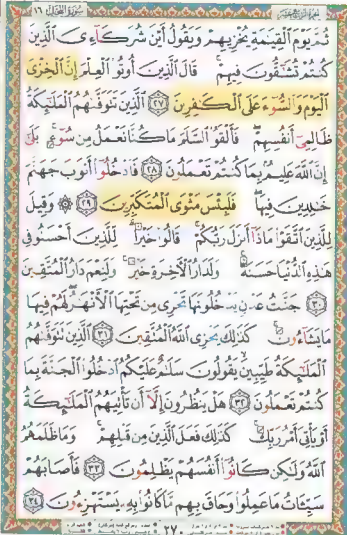 ثُمَّ يَوْمَ ٱلْقِيَٰمَةِ يُخْزِيهِمْ وَيَقُولُ أَيْنَ شُرَكَآءِىَ ٱلَّذِينَ
كُنتُمْ تُشَٰٓقُّونَ فِيهِمْ ۚ قَالَ ٱلَّذِينَ أُوتُوا۟ ٱلْعِلْمَ إِنَّ ٱلْخِزْىَ
ٱلْيَوْمَ وَٱلسُّوٓءَ عَلَى ٱلْكَٰفِرِينَ ٢٧ ٱلَّذِينَ تَتَوَفَّىٰهُمُ ٱلْمَلَٰٓئِكَةُ
ظَالِمِىٓ أَنفُسِهِمْ ۖ فَأَلْقَوُا۟ ٱلسَّلَمَ مَا كُنَّا نَعْمَلُ مِن سُوٓءٍۭ ۚ بَلَىٰٓ
إِنَّ ٱللَّهَ عَلِيمٌۢ بِمَا كُنتُمْ تَعْمَلُونَ ٢٨ فَٱدْخُلُوٓا۟ أَبْوَٰبَ جَهَنَّمَ
خَٰلِدِينَ فِيهَا ۖ فَلَبِئْسَ مَثْوَى ٱلْمُتَكَبِّرِينَ ٢٩ ۞ وَقِيلَ
لِلَّذِينَ ٱتَّقَوْا۟ مَاذَآ أَنزَلَ رَبُّكُمْ ۚ قَالُوا۟ خَيْرًا ۗ لِّلَّذِينَ أَحْسَنُوا۟ فِى
هَٰذِهِ ٱلدُّنْيَا حَسَنَةٌ ۚ وَلَدَارُ ٱلْءَاخِرَةِ خَيْرٌ ۚ وَلَنِعْمَ دَارُ ٱلْمُتَّقِينَ
٣٠ جَنَّٰتُ عَدْنٍ يَدْخُلُونَهَا تَجْرِى مِن تَحْتِهَا ٱلْأَنْهَٰرُ ۖ لَهُمْ فِيهَا
مَا يَشَآءُونَ ۚ كَذَٰلِكَ يَجْزِى ٱللَّهُ ٱلْمُتَّقِينَ ٣١ ٱلَّذِينَ تَتَوَفَّىٰهُمُ
ٱلْمَلَٰٓئِكَةُ طَيِّبِينَ ۙ يَقُولُونَ سَلَٰمٌ عَلَيْكُمُ ٱدْخُلُوا۟ ٱلْجَنَّةَ بِمَا
كُنتُمْ تَعْمَلُونَ ٣٢ هَلْ يَنظُرُونَ إِلَّآ أَن تَأْتِيَهُمُ ٱلْمَلَٰٓئِكَةُ
أَوْ يَأْتِىَ أَمْرُ رَبِّكَ ۚ كَذَٰلِكَ فَعَلَ ٱلَّذِينَ مِن قَبْلِهِمْ ۚ وَمَا ظَلَمَهُمُ
ٱللَّهُ وَلَٰكِن كَانُوٓا۟ أَنفُسَهُمْ يَظْلِمُونَ ٣٣ فَأَصَابَهُمْ
سَيِّـَٔاتُ مَا عَمِلُوا۟ وَحَاقَ بِهِم مَّا كَانُوا۟ بِهِۦ يَسْتَهْزِءُونَ ٣٤
٢٧٠